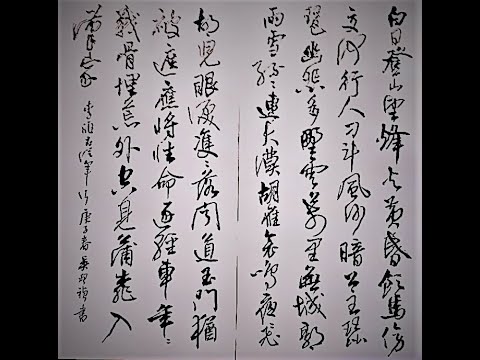 白日登山望烽火黃昏飲馬傍
交河行人刁斗風沙暗公主琵
琶幽怨多野雲萬里無城郭
雨雪紛〻連大漠胡雁哀鳴夜〻飛
胡兒眼淚雙〻落聞道玉門猶
被遮應將性命逐輕車年〻
戰骨埋荒外空見蒲萄入
漢家 李頎古從軍行 庚子春 書